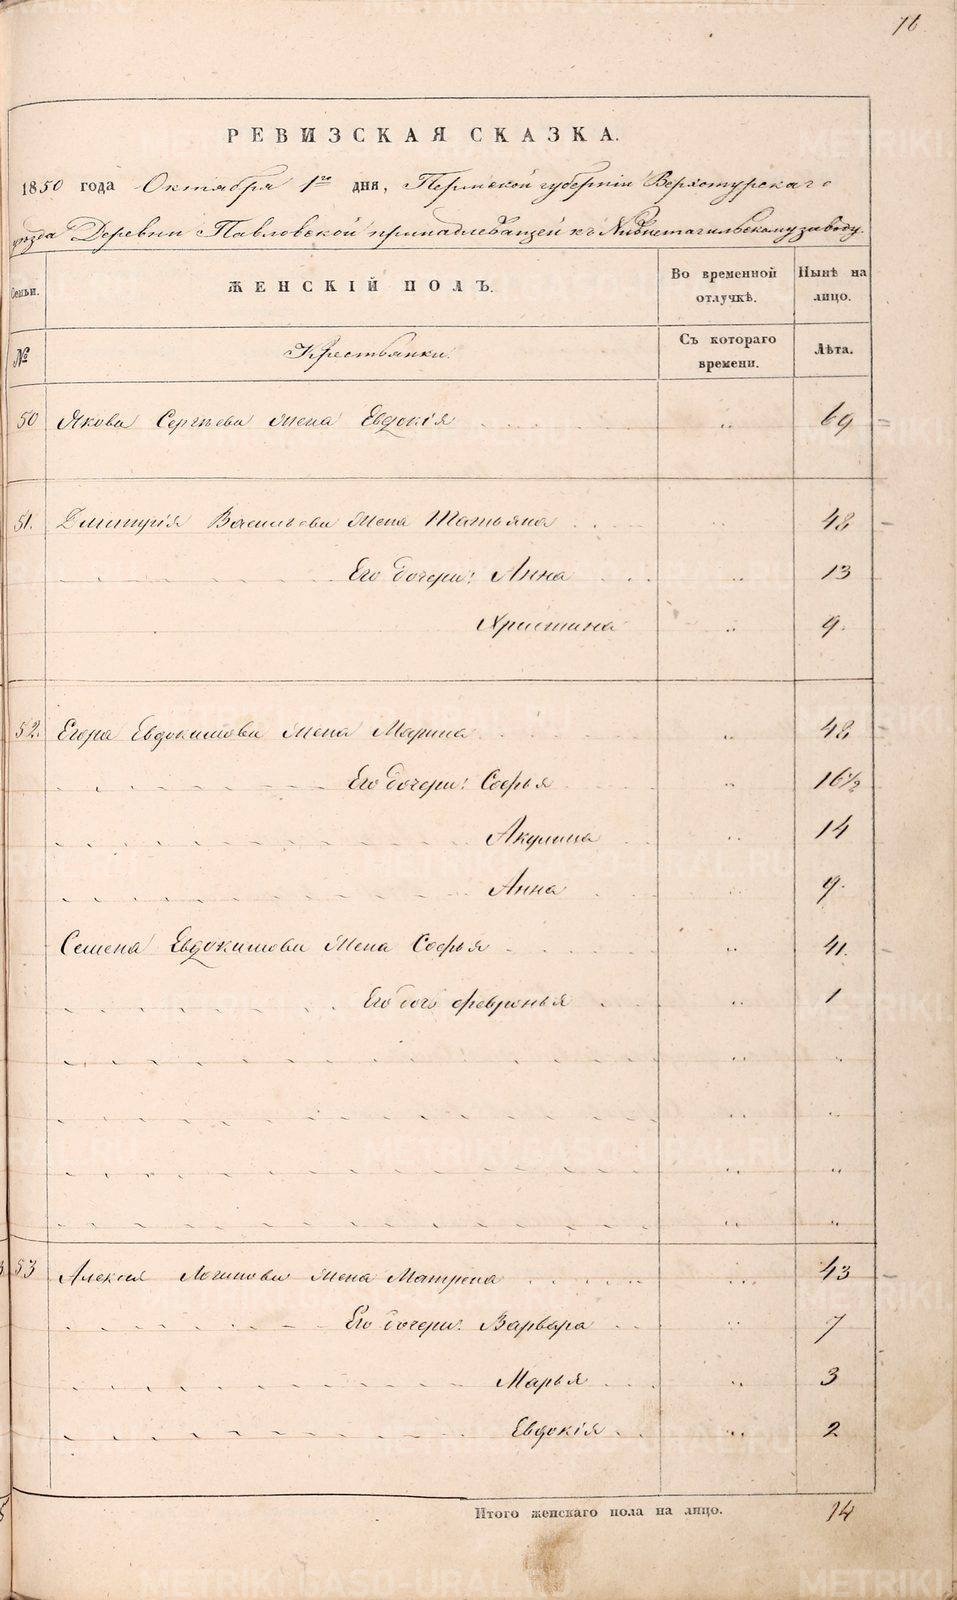 76
РЕВИЗСКАЯ СКАЗКА.
1850 года Октября 1го дня, Пермской губерніи Верхотурскаго
уѣзда Деревни Павловской принадлежащей къ Нижнетагильскому заводу.
Семьи. ЖЕНСКІЙ ПОЛЪ. Во временной отлучкѣ. Нынѣ на лицо.
№ Крестьянки. Съ котораго времени. Лѣта.
50 Якова Сергѣева жена Евдокія 69
51. Дмитрія Васильева жена Татьяна 48
Его дочери: Анна 13
Христина 9.
52. Егора Евдокимова жена Марина 48
Его дочери: Софья 16½
Акулина 14
Анна 9.
Семена Евдокимова жена Софья 41.
Его дочь Февронья 1
53 Алексѣя Логинова жена Матрена 43
Его дочери: Варвара 7
Марья 3
Евдокія 2
Итого женскаго пола на лицо. 14
METRIKI.GASO-URAL.RU